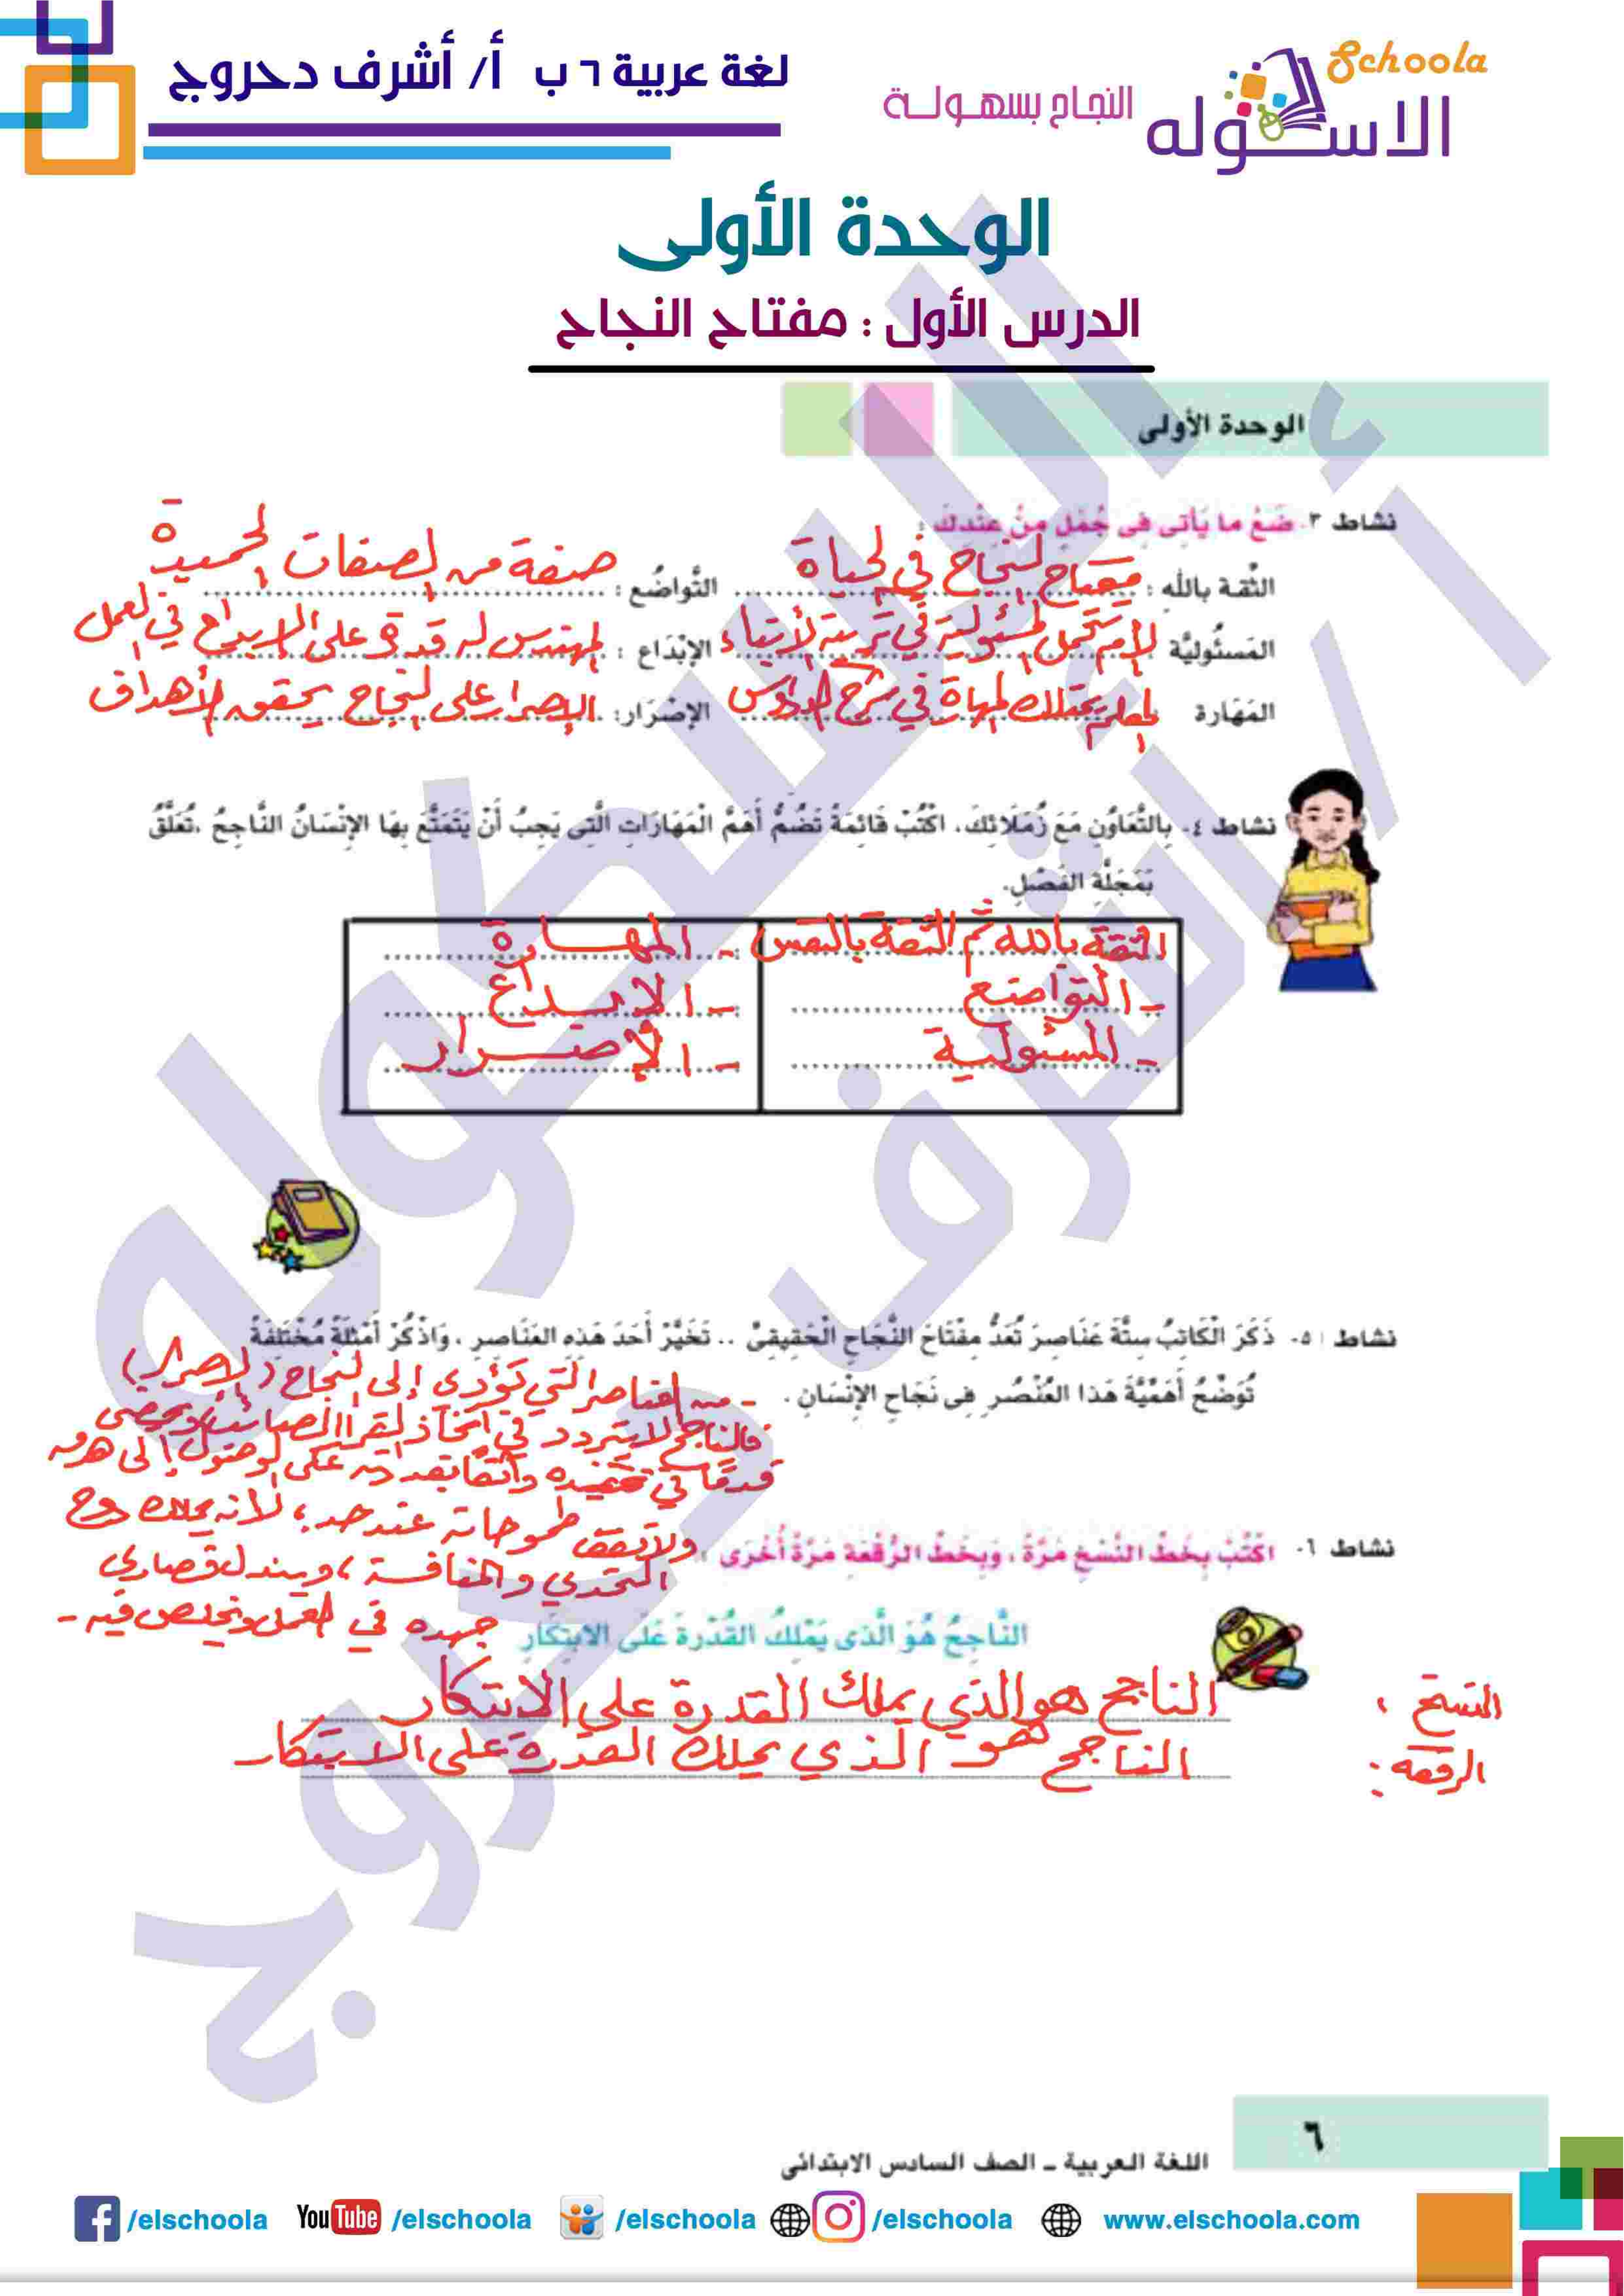 لغة عربية ٦ ب أ/ أشرف دحروج
Schoola
الاسكوله
النجاح بسهولة
الوحدة الأولى
الدرس الأول : مفتاح النجاح
الوحدة الأولى
نشاط ٣- ضَعْ ما يَأتِى فِى جُمَلٍ مِنْ عِنْدِكَ :
الثِّقة باللهِ : مفتاح النجاح في الحياة التَّواضُع : صفة من الصفات الحميدة
المَسئُوليَّة الأم تتحمل المسئولية في تربية الأبناء الإبْدَاع : المهندس له قدرة على الإبداع في العمل
المَهَارة المعلم يمتلك المهارة في شرح الدروس الإصْرَار: الإصرار على النجاح يحقق الأهداف
نشاط ٤- بِالتَّعَاوُنِ مَعَ زُمَلَائِكَ، اكْتُبْ قَائِمَةً تَضُمُّ أَهَمَّ الْمَهَارَاتِ الَّتِى يَجِبُ أَنْ يَتَمَتَّعَ بِهَا الإنْسَانُ النَّاجِحُ ،تُعَلَّقُ
بِمَجَلَّةِ الفَصْلِ.
الثقة بالله ثم الثقة بالنفس - المهارة
- التواضع - الإبداع
- المسئولية - الإصرار
نشاط ٥- ذَكَرَ الْكَاتِبُ سِتَّةَ عَنَاصِرَ تُعَدُّ مِفْتَاحَ النَّجَاحِ الْحَقِيقِىِّ .. تَخَيَّرْ أَحَدَ هَذِهِ العَنَاصِرِ ، وَاذْكُرْ أَمْثِلَةً مُخْتَلِفَةً
تُوَضِّحُ أَهَمِّيَّةَ هَذا العُنْصُرِ فِى نَجَاحِ الإنْسَانِ .
- من العناصر التي تؤدى إلى النجاح (الإصرار)
فالناجح لا يتردد في اتخاذ القرار الصائب ويمضى
قدمًا في تنفيذه واثقًا بقدراته على الوصول إلى هدفه
ولا تقف طموحاته عند حد، لأنه يملك روح
التحدي والمنافسة، ويبذل قصارى
جهده في العمل ويخلص فيه -
نشاط ٦- اكْتُبْ بِخَطِّ النَّسْخِ مَرَّةً ، وَبِخَطِّ الرُّقْعَةِ مَرَّةً أُخْرَى :
النَّاجِحُ هُوَ الَّذى يَمْلِكُ القُدْرَةَ عَلَى الابتِكَارِ
النسخ : الناجح هو الذي يملك القدرة على الابتكار
الرقعة : الناجح هو الذي يملك القدرة على الابتكار
٦
اللغة العربية ـ الصف السادس الابتدائى
/elschoola YouTube /elschoola /elschoola /elschoola www.elschoola.com
أ / أشرف دحروج